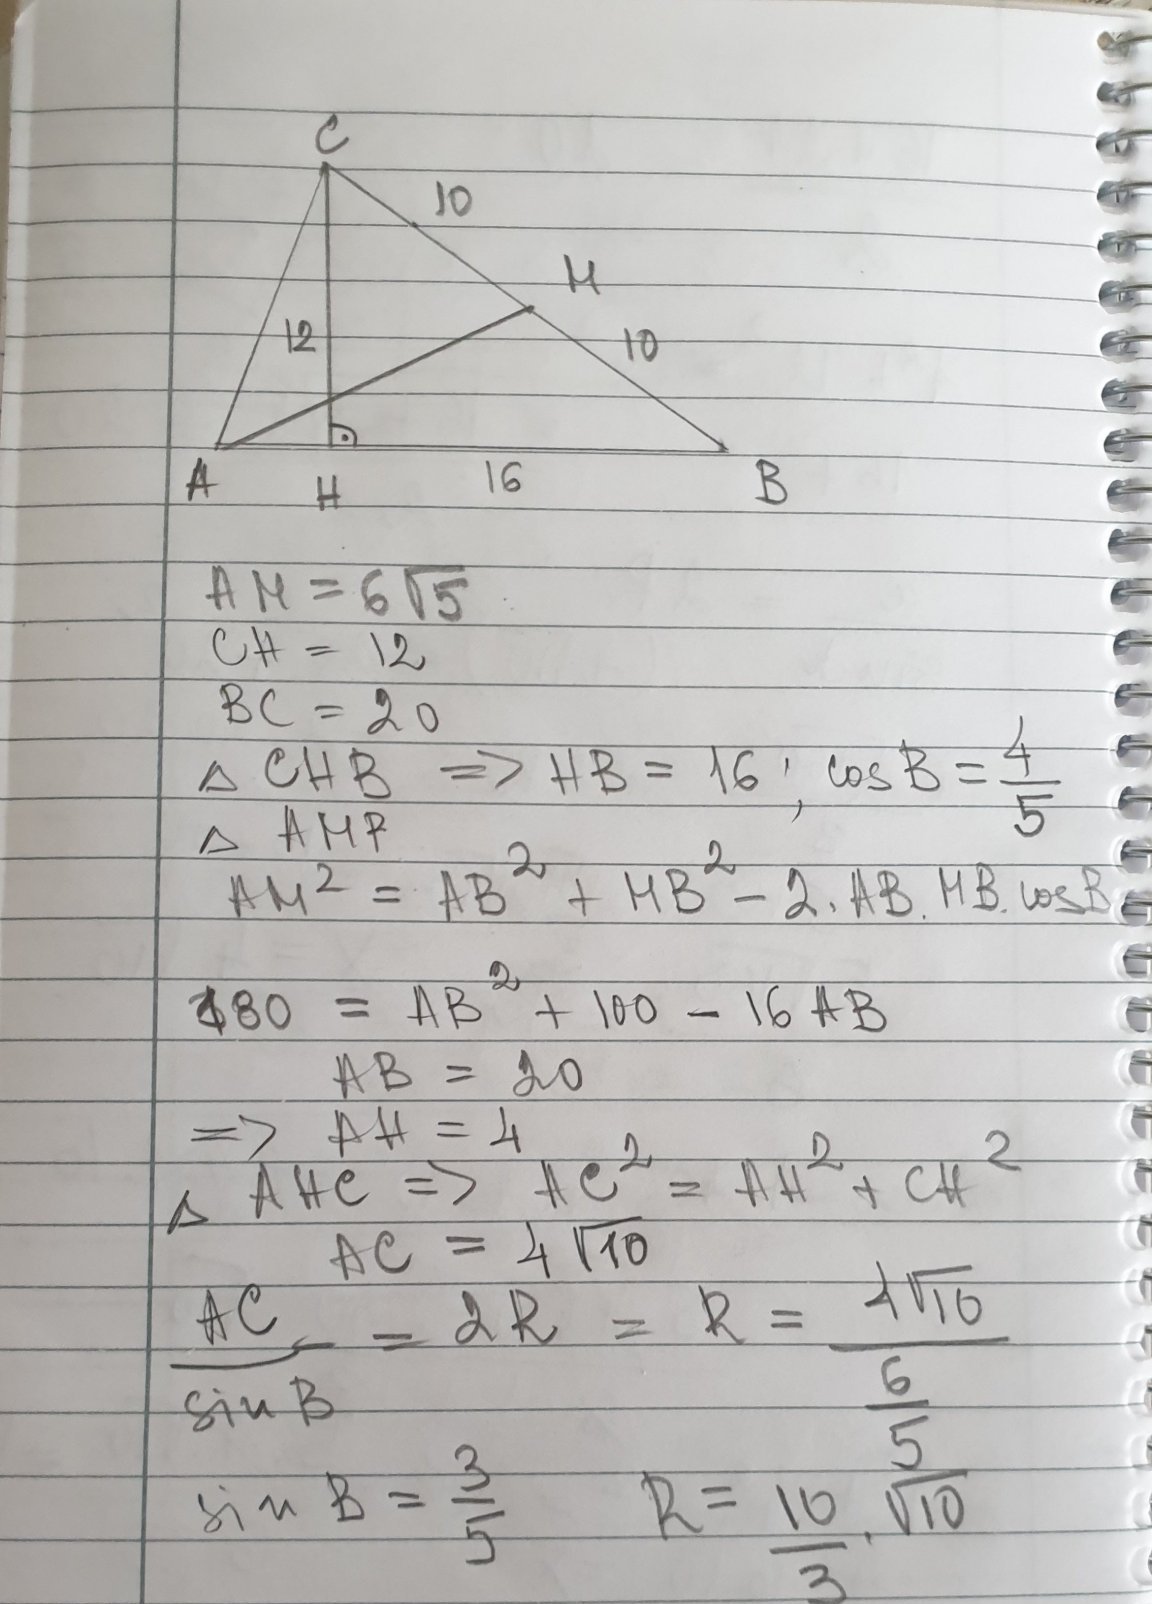 C
10
M
12
10
A H 16 B
AM = 6√5
CH = 12
BC = 20
△ CHB => HB = 16 ; cos B = 4/5
△ AMB
AM² = AB² + MB² - 2. AB. MB. cosB
180 = AB² + 100 - 16 AB
AB = 20
=> AH = 4
△ AHC => AC² = AH² + CH²
AC = 4√10
AC/sin B = 2R = R = 4√10/(6/5)
sin B = 3/5 R = 10/3 . √10